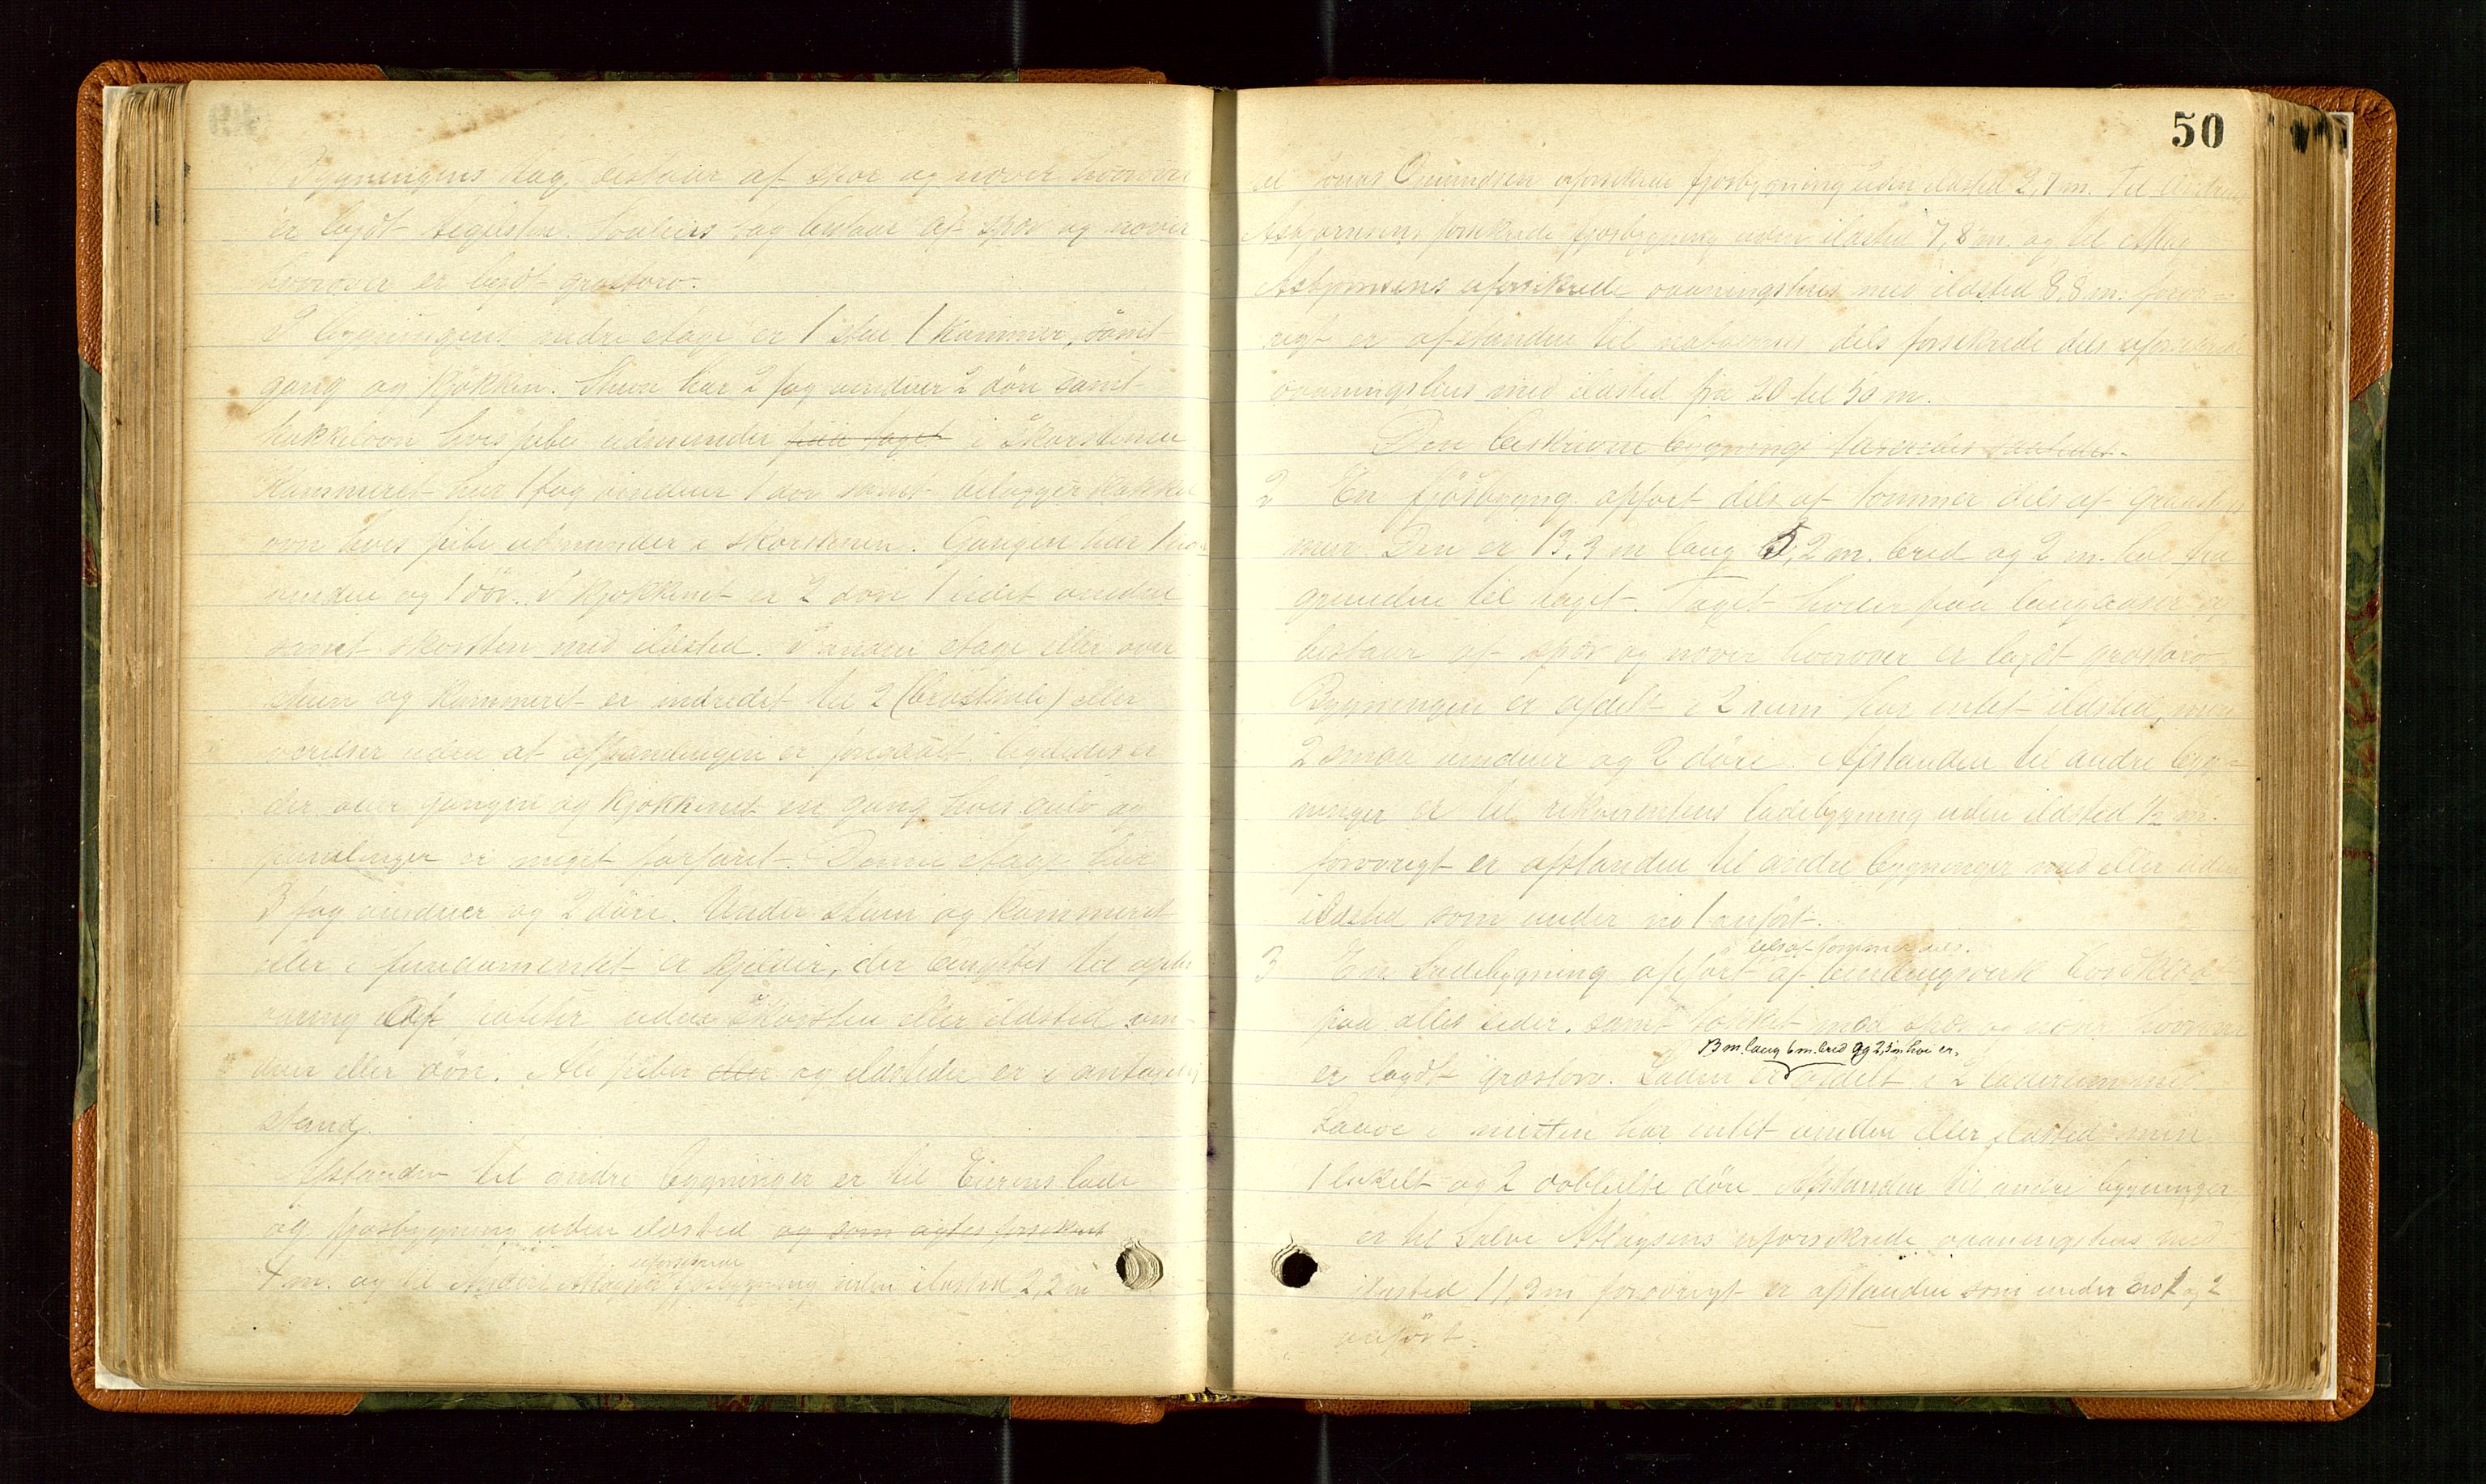 Bygningens tag bestaar af spor og nover hvorover
er lagdt teglsten. Svalens tag bestaar af spor og nover
hvorover er lagdt græstorv.
I bygningens nedre etage er 1 stue 1 Kammer, samt
gang og Kjökken. Stuen har 2 fag vinduer 2 döre samt
kakkelovn hvis pibe udmunder i Skorstenen
Kammeret har 1 fag vinduer 1 dör samt Kakkel
ovn hvis pibe udmunder i skorstenen. Gangen har 1
vindue og 1 dör. I Kjökkenet er 2 döre 1 vindue
samt skorsten med ildsted. I anden etage eller over
stuen og Kammeret er indredet til 2 eller
værelser uden at afpanelingen er foregaaet, ligeledes er
der over gangen og Kjökkenet en gang hvis gulv og
panelinger er meget forfaret. Denne etage har
3 fag vinduer og 2 döre. Under stuen og Kammeret
eller i fundamentet er Kjelder, der benyttes til opbe
varing af poteter uden Skorsten eller ildsted vin-
duer eller döre. Alle piber og ildsteder er i
stand.
Afstanden til andre bygninger er til Eierens lade
og fjösbygning uden ildsted og som agtes forsikret
4 m. og til uforsikrede fjösbygning uden ildsted 2,2 m
50
til Jonas uforsikrede fjösbygning uden ildsted 2,1 m. til
Asbjörnsens forsikrede fjösbygning uden ildsted 7,8 m. og til
Asbjörnsens uforsikrede vaaningshus med ildsted 8,8 m. forov-
rigt er afstanden til naboernes dels forsikrede dels uforsikrede
vaaningshus med ildsted fra 20 til 50 m.
Den beskrivne bygning taxeredes saaledes.
2 En fjösbygning opfört dels af tömmer dels af graastens
mur. Den er 13,3 m lang 5,2 m. bred og 2 m. höi fra
grunden til taget. Taget hviler paa langaaser og
bestaar af spor og nover hvorover er lagdt græstorv
Bygningen er afdelt i 2 rum har intet ildsted, men
2 smaa vinduer og 2 döre. Afstanden til andre byg-
ninger er til rekvirentens ladebygning uden ildsted 1/2 m.
forövrigt er afstanden til andre bygninger med eller uden
ildsted som under no 1 anfört.
dels af tömmer dels
3 En Ladebygning opfört af bindingsverk bordklæd
paa alle sider. samt tækket med spor og nover hvorover
13 m. lang 6 m. bred og 2,5 m höi er,
er lagdt græstorv. Laden er afdelt i 2 laderum med
Laave i midten har intet vindue eller ildsted men
1 enkelt og 2 dobbelte döre. Afstanden til andre bygninger
er til Salve Atlaysens uforsikrede vaaningshus med
ildsted 11,3 m forövrigt er afstanden som under no 1 og 2
anfört.